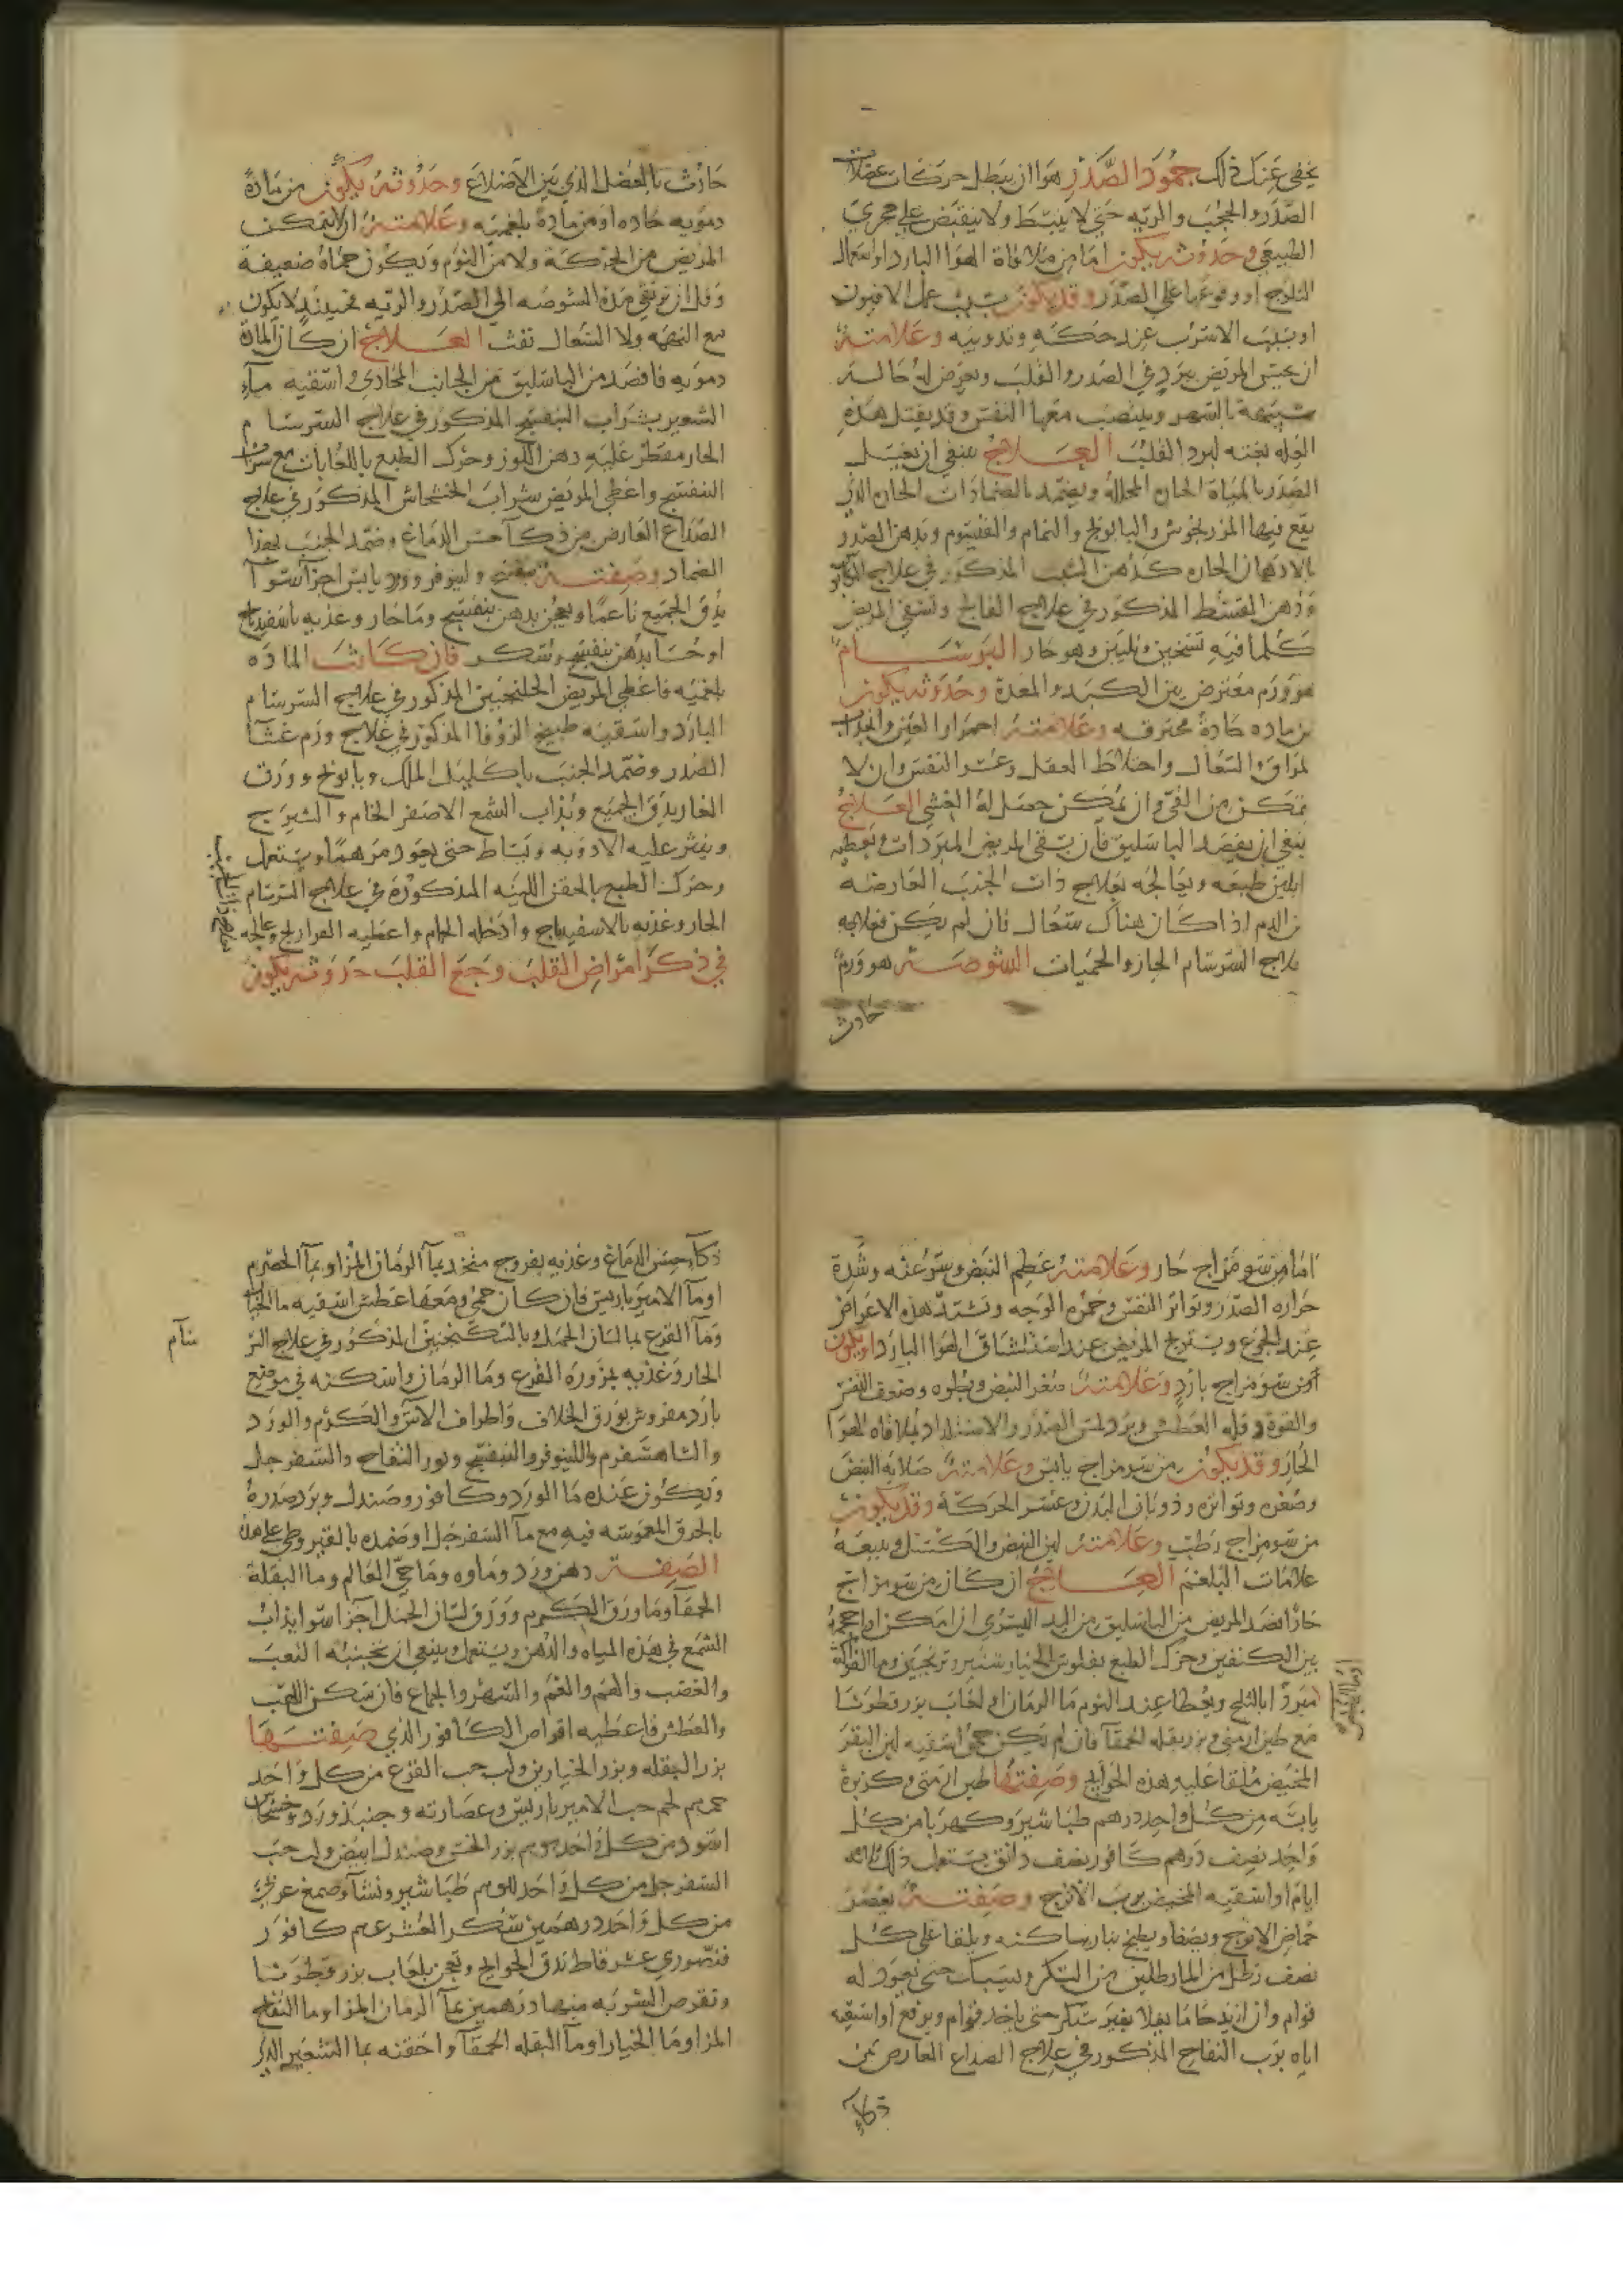 يخفى عنك ذلك جمود الصدر هو ان يبطل حركات عضلات
الصدر والحجب والريه حتى لا ينبسط ولا ينقبض على مجرى
الطبيعي وحدوثه يكون اما من ملاقاة الهوا البارد او استعمال
الثلوج او وقوعها على الصدر وقد يكون بسبب عمل الافيون
او بسبب الاسرب عند حكه وتدويبه وعلامته
ان يحس المريض ببرد في الصدر والقلب ويعرض له حاله
شبيهة بالسهر وينتصب معها النفس وقد يقتل هذه
العله بغته لبرد القلب العلاج ينبغي ان يغسل
الصدر بالمياه الحاره المحلله ويضمد بالضمادات الحاره الذي
يقع فيها المرزنجوش والبابونج والنمام والقيسوم ويدهن الصدر
بالادهان الحاره كدهن المذكور في علاج
ودهن القسط المذكور في علاج الفالج ويسقى المريض
كلما فيه تسخين وتليين وهو حار البرسام
هو ورم معترض بين الكبد والمعدة وحدوثه يكون
من ماده حادة محترقه وعلامته احمرار العين وانجذاب
المراق والسعال واختلاط العقل وعسر النفس وان لا
يتمكن من القي وان يمكن حصل له الغشي العلاج
ينبغي ان يفصد الباسليق فان يسقى المريض المبردات وتعطيه
لتليين طبعه ويعالجه بعلاج ذات الجنب العارضه
من الدم اذا كان هناك سعال فان لم يكن فعلاجه
بعلاج السرسام الحار والحميات الشوصه هو ورم
حادث
حادث بالعضل الذي بين الاضلاع وحدوثه يكون من مادة
دمويه حاده او من مادة بلغميه وعلامته ان لا يتمكن
المريض من الحركة ولا من النوم ويكون حماه ضعيفة
وقل ان ترتقي مدة الشوصه الى الصدر والريه فحينئذ لا يكون
مع السعال نفث العلاج ان كان المادة
دمويه فافصد من الباسليق من الجانب المحاذي واسقيه ماء
الشعير بشراب البنفسج المذكور في علاج السرسام
الحار مقطر عليه دهن اللوز وحرك الطبع باللعابات مع شراب
البنفسج واعطي المريض شراب الخشخاش المذكور في علاج
الصداع العارض من ذكآ حس الدماغ وضمد الجنب بهذا
الضماد وصفته بنفسج ولينوفر وورد يابس اجزآ سوآ
يدق الجميع ناعما ويعجن بدهن بنفسج وما حار وغذيه باسفيدباج
او حسا بدهن بنفسج وسكر فان كانت المادة
بلغميه فاعطي المريض الجلنجبين المذكور في علاج السرسام
البارد واسقيه طبيخ الزوفا المذكور في علاج ورم غشآ
الصدر وضمد الجنب باكليل الملك وبابونج وورق
الغار يدق الجميع ويذاب الشمع الاصفر الخام والشيرج
وينثر عليه الادويه ويساط حتى يعود مرهما ويستعمل
وحرك الطبع بالحقن اللينه المذكورة في علاج السرسام
الحار وغذيه بالاسفيدباج وادخله الحمام واعطيه الفراريج وعالجه
بعلاج ذات الجنب
في ذكر امراض القلب وجع القلب حدوثه يكون
اما من سو مزاج حار وعلامته عظم النبض وسرعته وشدة
حرارة الصدر وتواتر النفس وحمرة الوجه وتشتد هذه الاعراض
عند الجوع ويستريح المريض عند استنشاق الهوا البارد او يكون
من سو مزاج بارد وعلامته صغر النبض وبطوه وضعف النفس
والقوة وقلة العطش وبرد لمس الصدر والاستلذاد بملاقاه الهوا
الحار وقد يكون من سو مزاج يابس وعلامته صلابه النبض
وصغره وتواتره وذوبان البدن وعسر الحركة وقد يكون
من سو مزاج رطب وعلامته لين النبض والكسل ويتبعه
علامات البلغم العلاج ان كان من سو مزاج
حار افصد المريض من الباسليق من اليد اليسرى ان امكن او احجمه
بين الكتفين وحرك الطبع بفلوس الخيار شنبر وترنجبين وما الفواكه
مبردا بالثلج ويعطا عند النوم ما الرمان او لعاب بزر قطونا
مع طين ارمني وبزر بقله الحمقا فان لم يكن حمى اسقيه لبن البقر
المخيض ملقا عليه هذه الحوايج وصفتها طين ارمني وكزبرة
يابسه من كل واحد درهم طباشير وكهربا من كل
واحد نصف درهم كافور نصف دانق يستعمل ذلك ثلاثه
ايام او اسقيه المخيض برب الاترج وصفته يعصر
حماض الاترج ويصفا ويطبخ بنار ساكنه ويلقا على كل
نصف رطل من الما رطلين من السكر حتى يعود له
قوام وان اريد حامضا يغلا بغير سكر حتى ياخذ قوام ويرفع او اسقيه
اياه برب التفاح المذكور في علاج الصداع العارض من
ذكاء
ذكآ حس الدماغ وغذيه بفروج متخذ بمآ الرمان المز او بمآ الحصرم
او مآ الامير باريس فان كان حمى ومعها عطش اسقيه ما الخيار
ومآ القرع بما لسان الحمل وبالسكنجبين المذكور في علاج السر
سآم
الحار وغذيه بمزورة القرع وما الرمان واسكنه في موضع
بارد مفروش بورق الخلاف واطراف الآس والكرم والورد
والشاهسفرم واللينوفر والبنفسج ونور التفاح والسفرجل
ويكون عنده ما الورد وكافور وصندل وبرد صدره
بالخرق المغموسه فيه مع مآ السفرجل او ضمده بالقيروطي على هذه
الصفة دهن ورد وماوه وما حي العالم وما البقلة
الحمقآ وما ورق الكرم وورق لسان الحمل اجزا سوا يذاب
الشمع في هذه المياه والدهن ويستعمل وينبغي ان يجنبه التعب
والغضب والهم والغم والسهر والجماع فان سكن اللهيب
والعطش فاعطيه اقراص الكافور الذي صفتها
بزر البقله وبزر الخيارين ولب حب القرع من كل واحد
لحم حب الامير باريس وعصارته وجنبذ ورد وخشخاش
اسود من كل واحد بزر الخس وصندل ابيض ولب حب
السفرجل من كل واحد طباشير ونشآ وصمغ عربي
من كل واحد درهمين سكر العشر كافور
فنصوري عشر قراط تدق الحوايج وتعجن بلعاب بزر قطونا
وتقرص الشربه منها درهمين بمآ الرمان المز او ما التفاح
المز او ما الخيار او مآ البقله الحمقآ واحقنه بما الشعير الذي